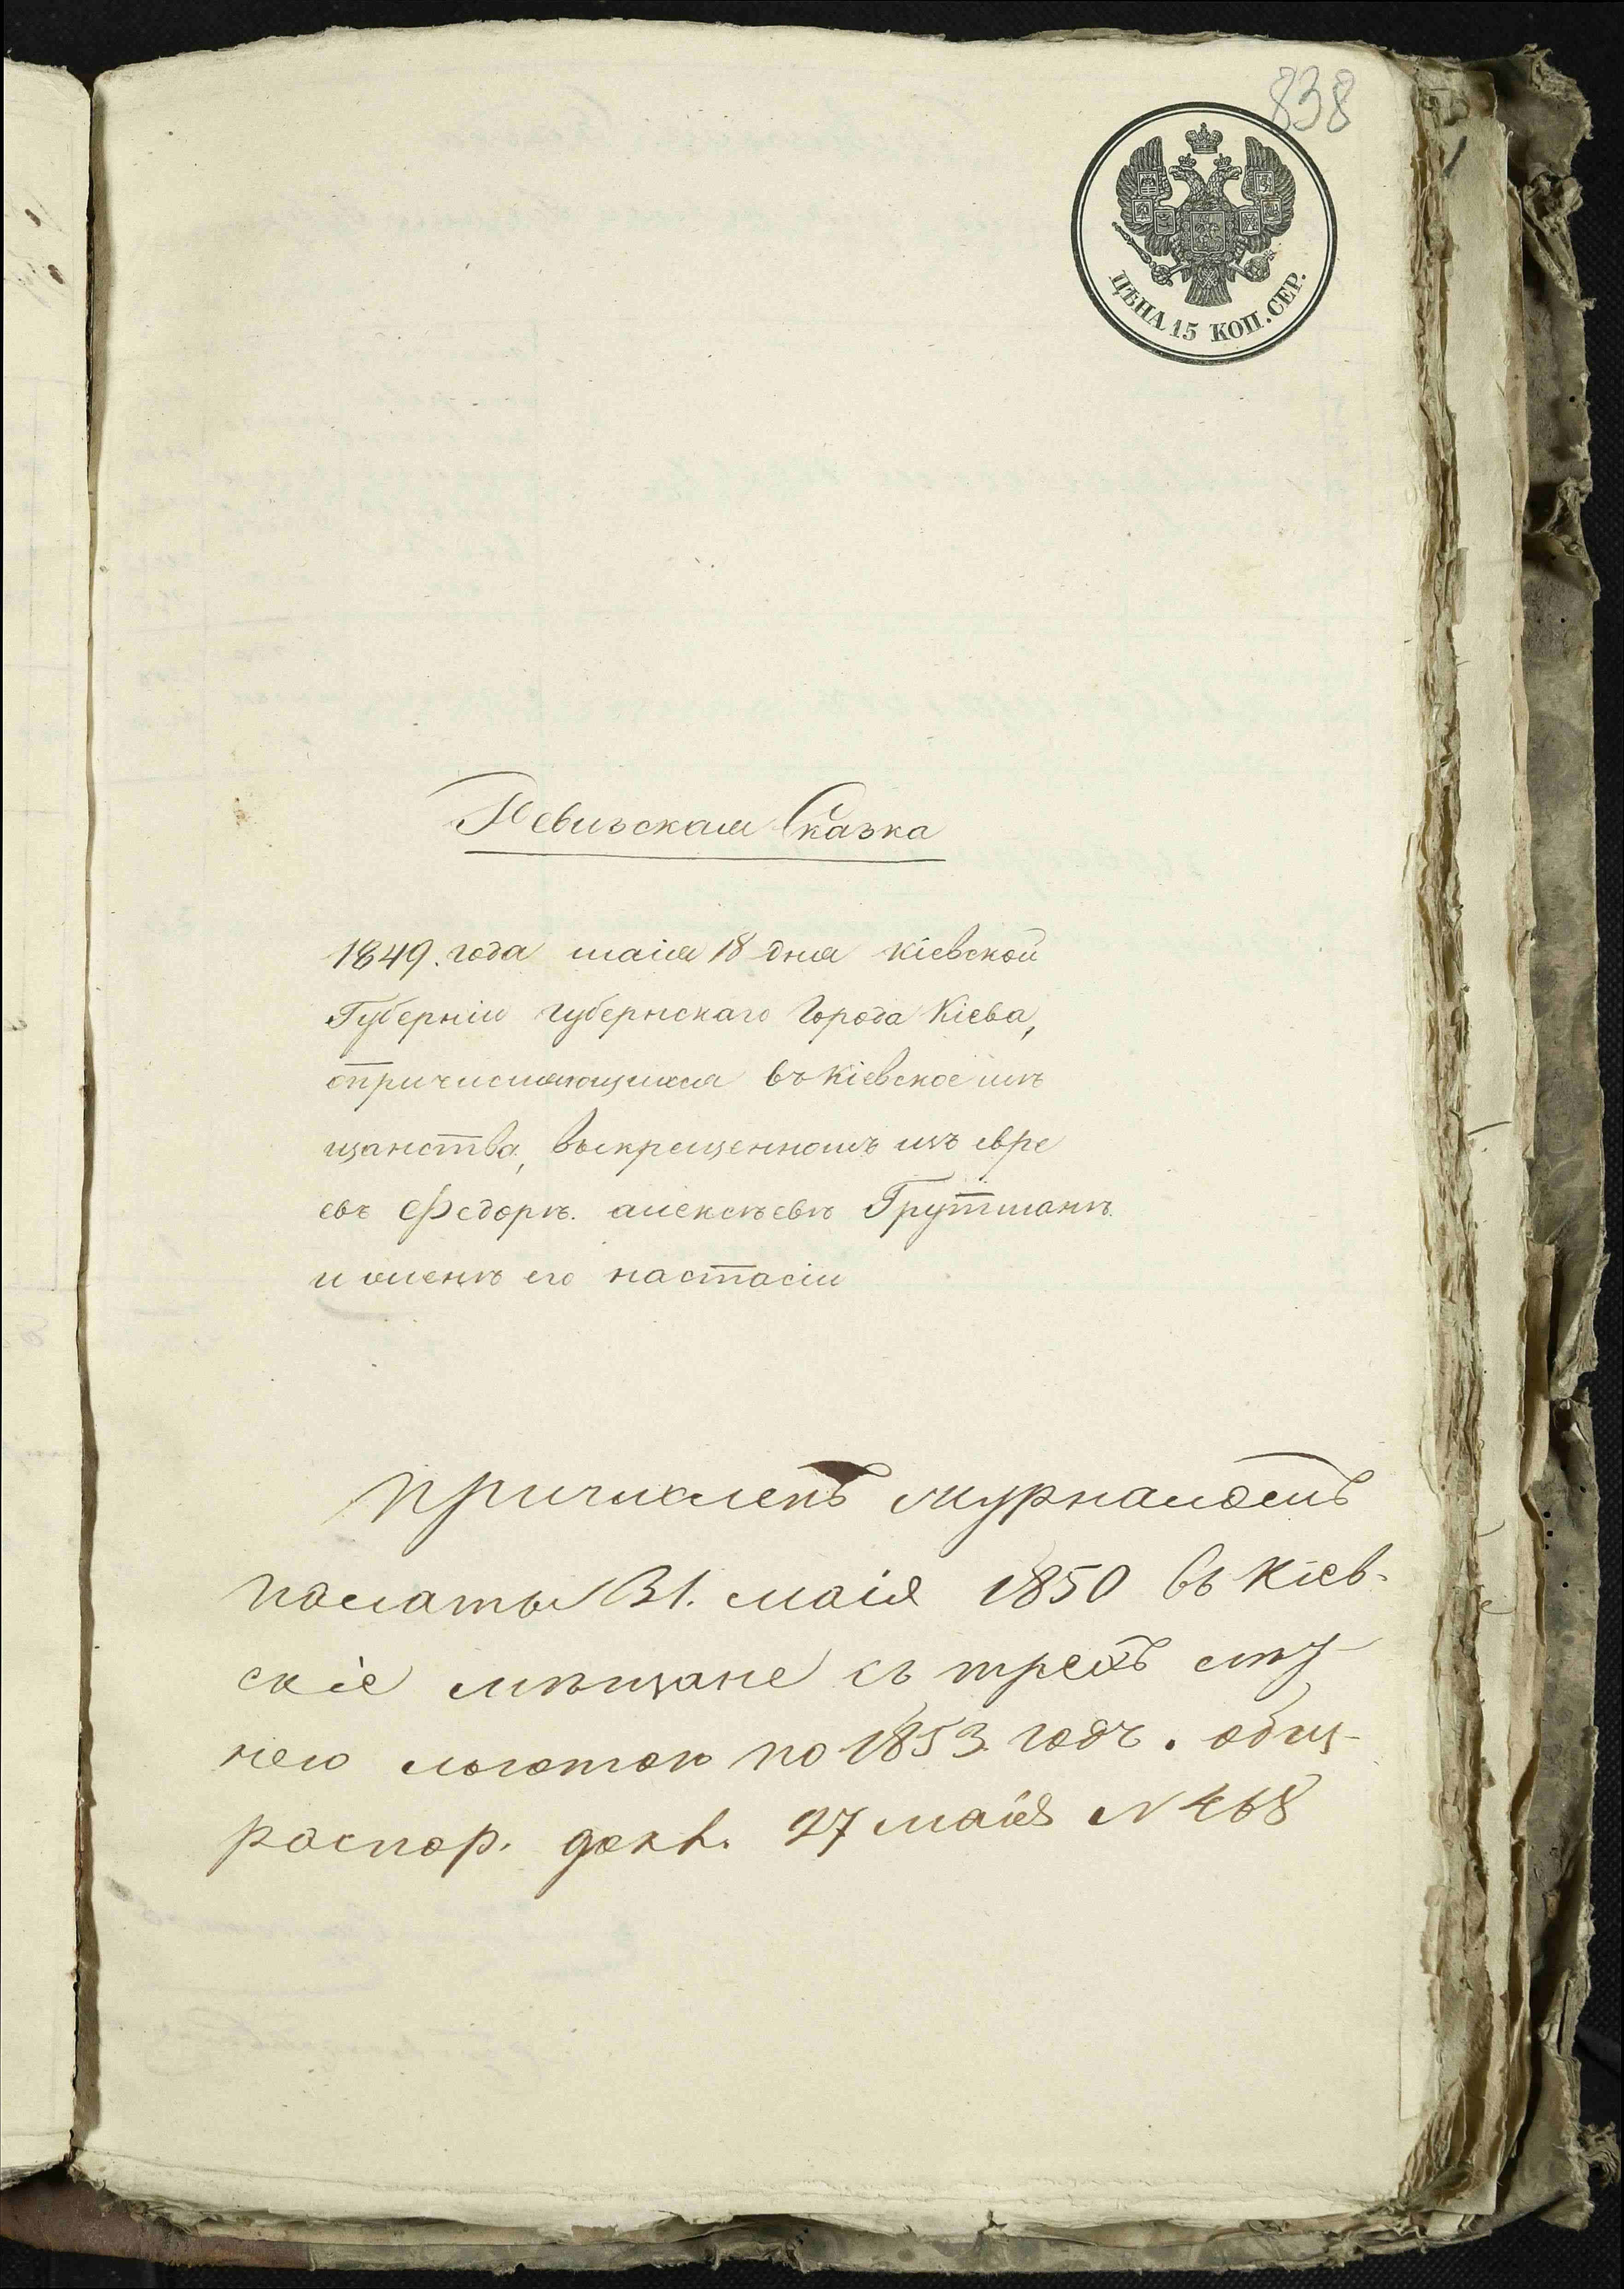 838
ЦѢНА 15 КОП. СЕР.
Ревизская Сказка
1849. года маія 18 дня кіевской
Губерніи губернскаго Города Кіева,
опричисляющихся въ Кіевское мѣ
щанство, выкрещенномъ изъ евре
евъ Федорѣ. алексѣевѣ Грутманѣ
и женѣ его настасіи
Причисленъ журналомъ
палаты 31. маія 1850 въ Кіев-
скіе мѣщане съ трех
нею льготою по 1853 годъ.
распор. 27 маія N 468